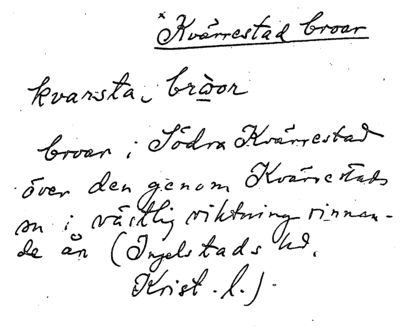 *Kvärrestad broar
kvarsta, bròor
broar i Södra Kvärrestad
över den genom Kvärrestads
sn i västlig riktning rinnan-
de ån (Ingelstads hd,
Krist. l.).